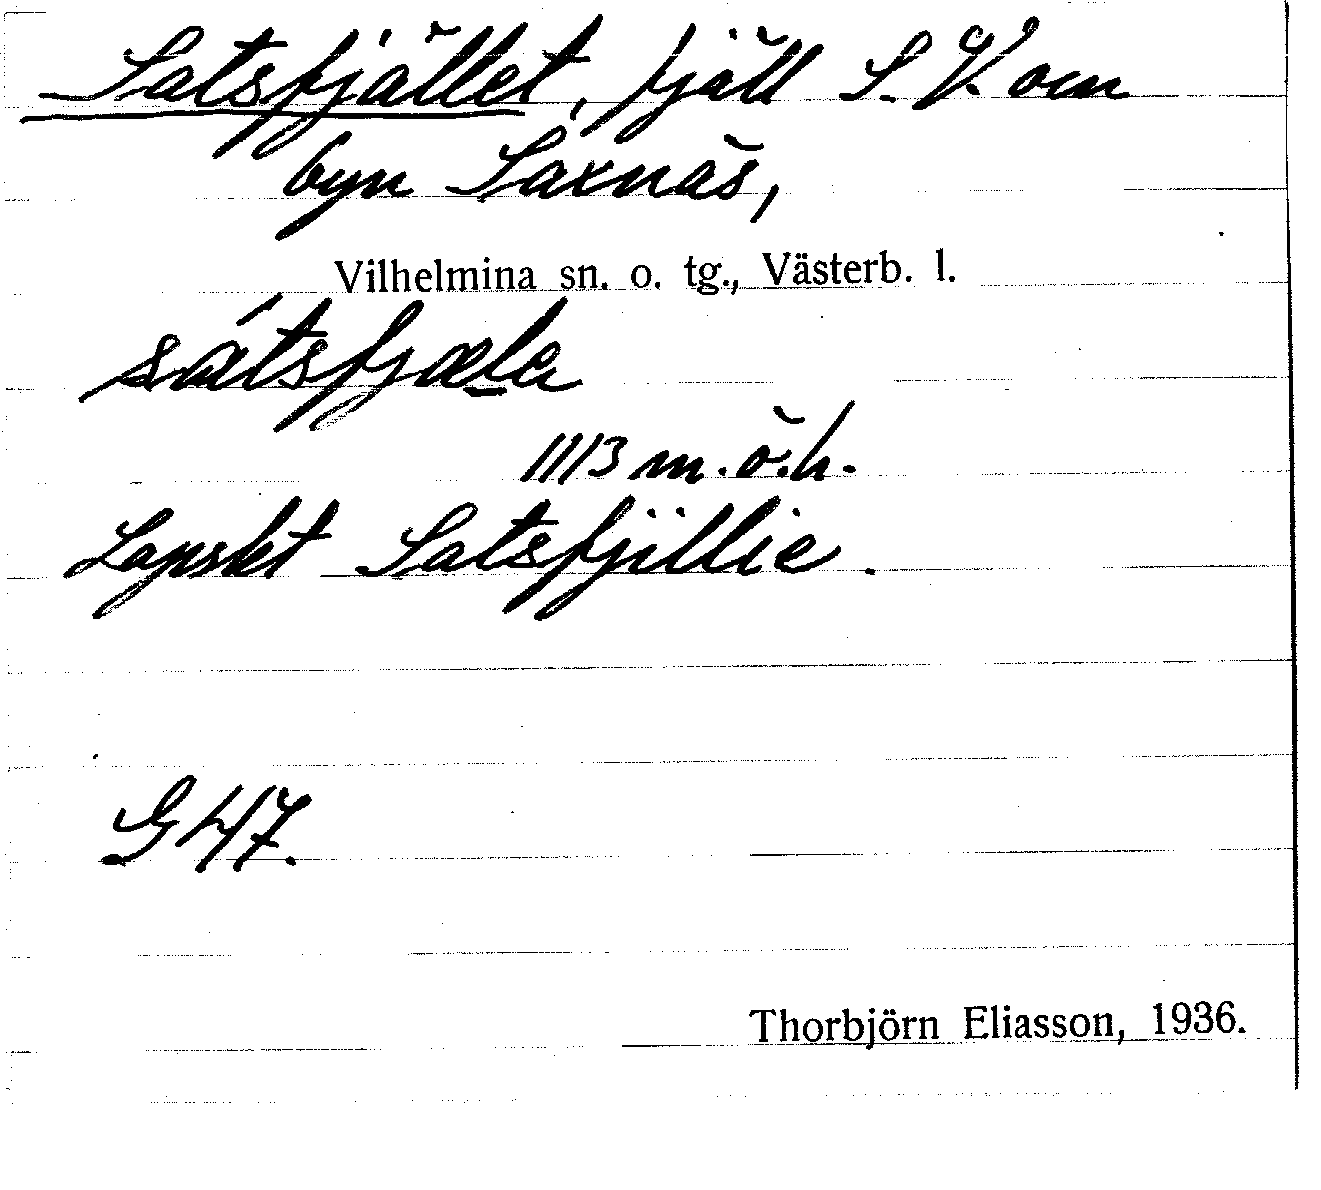 Satsfjället, fjäll S.V. om
byn Saxnäs,
Vilhelmina sn. o. tg., Västerb. l.
sátsfjælа
1113 m.ö.h.
Lapskt Satsfjillie.
G 47.
Thorbjörn Eliasson, 1936.